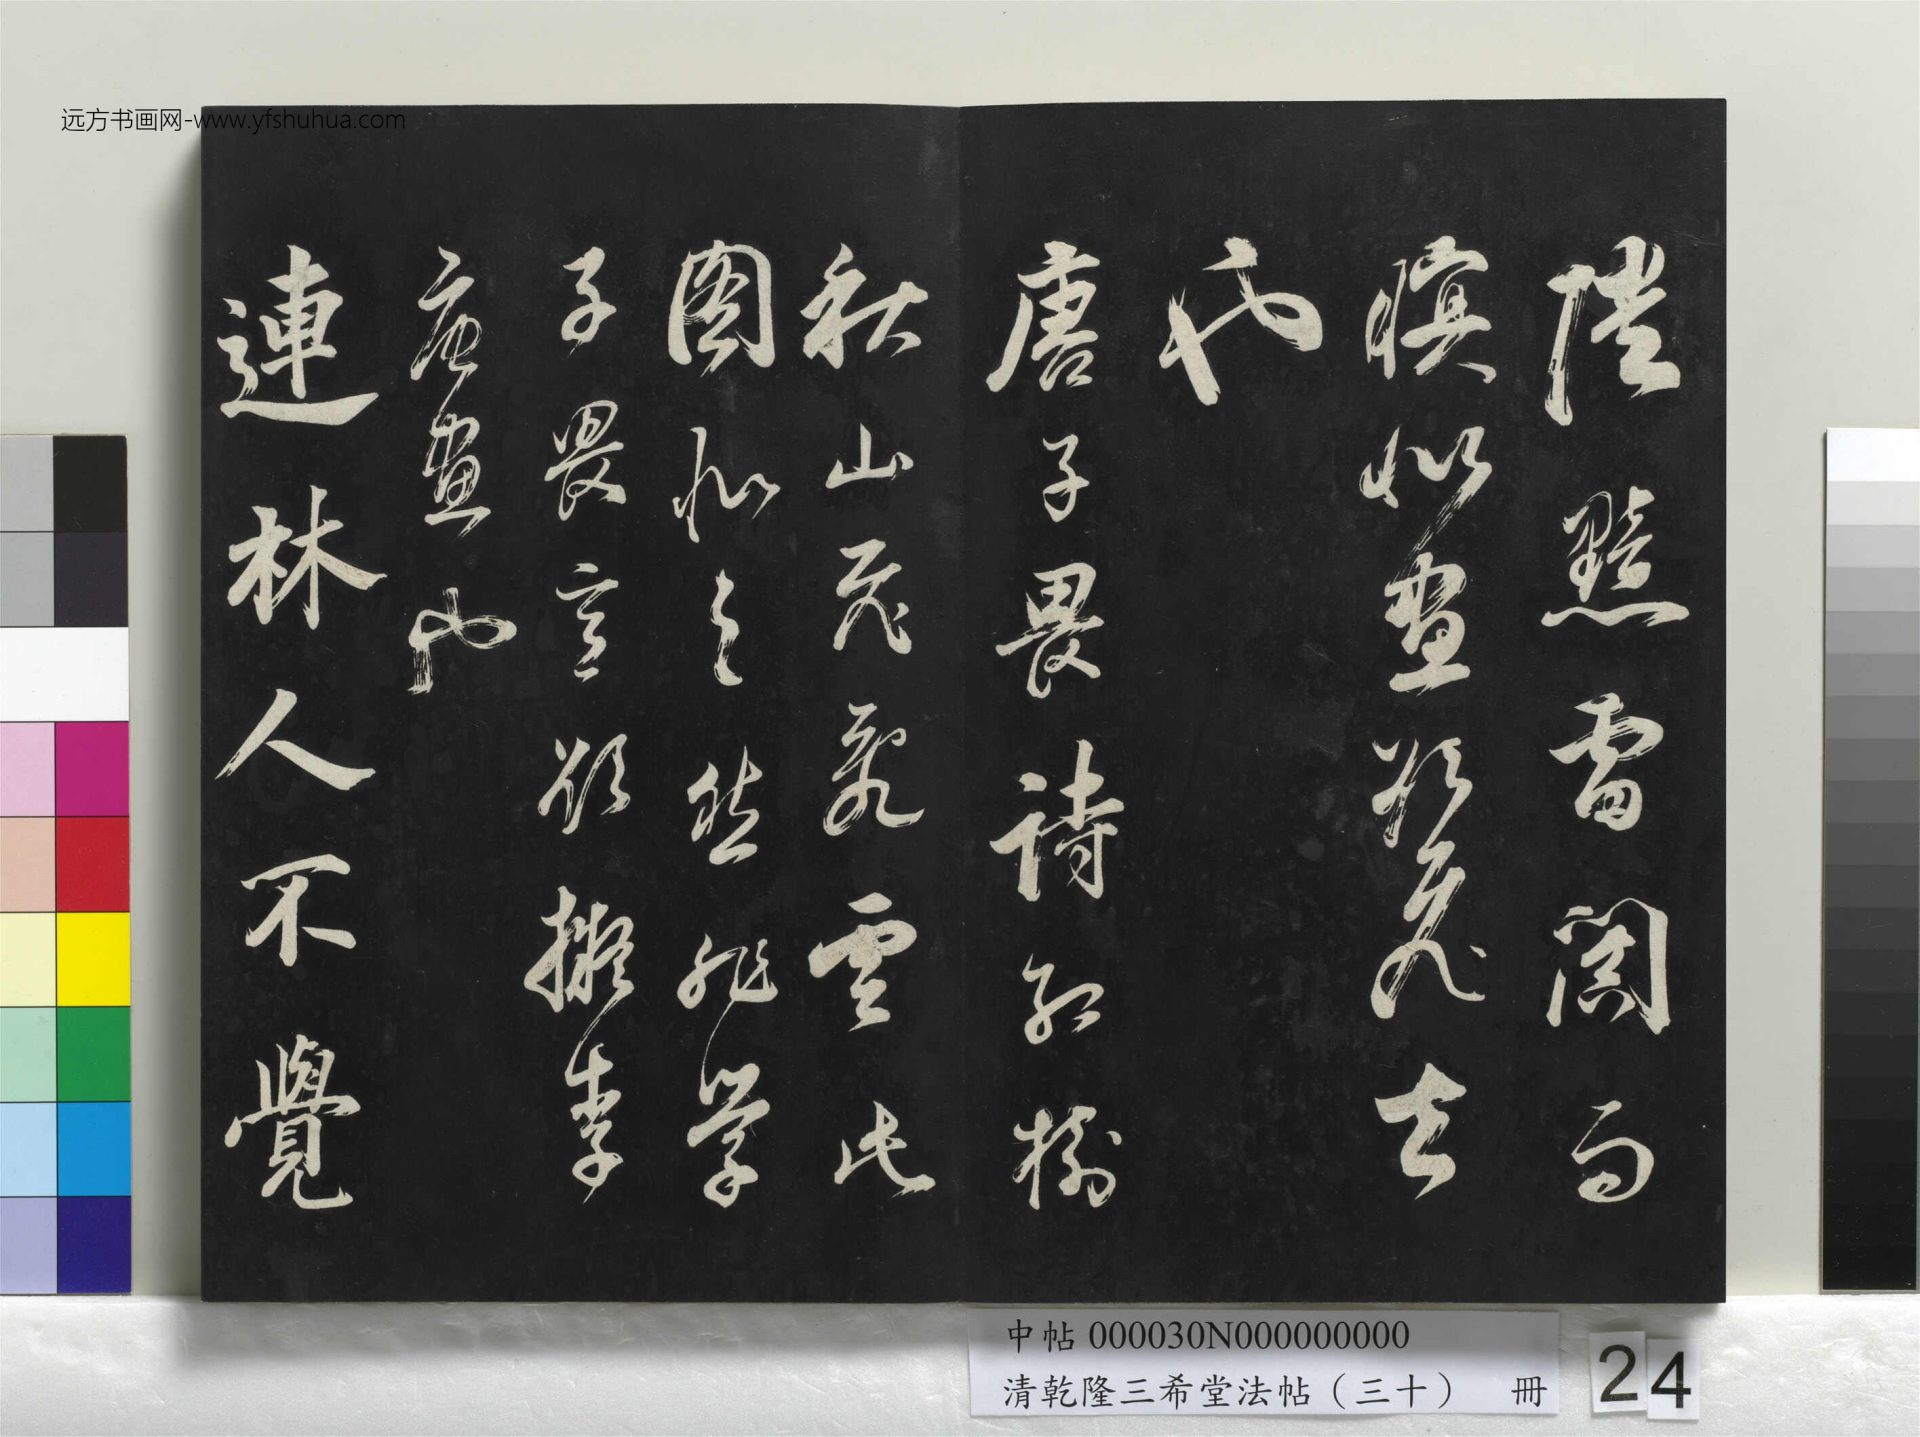 远方书画网-www.yfshuhua.com
黯雷闐雨
暝似畫欲飛去
也
唐子畏詩紅樹
秋山飛亂雲此
圖似之然非學
子畏意欲擬李
唐畫也
連林人不覺
中帖 000030N000000000
清乾隆三希堂法帖（三十） 冊
24